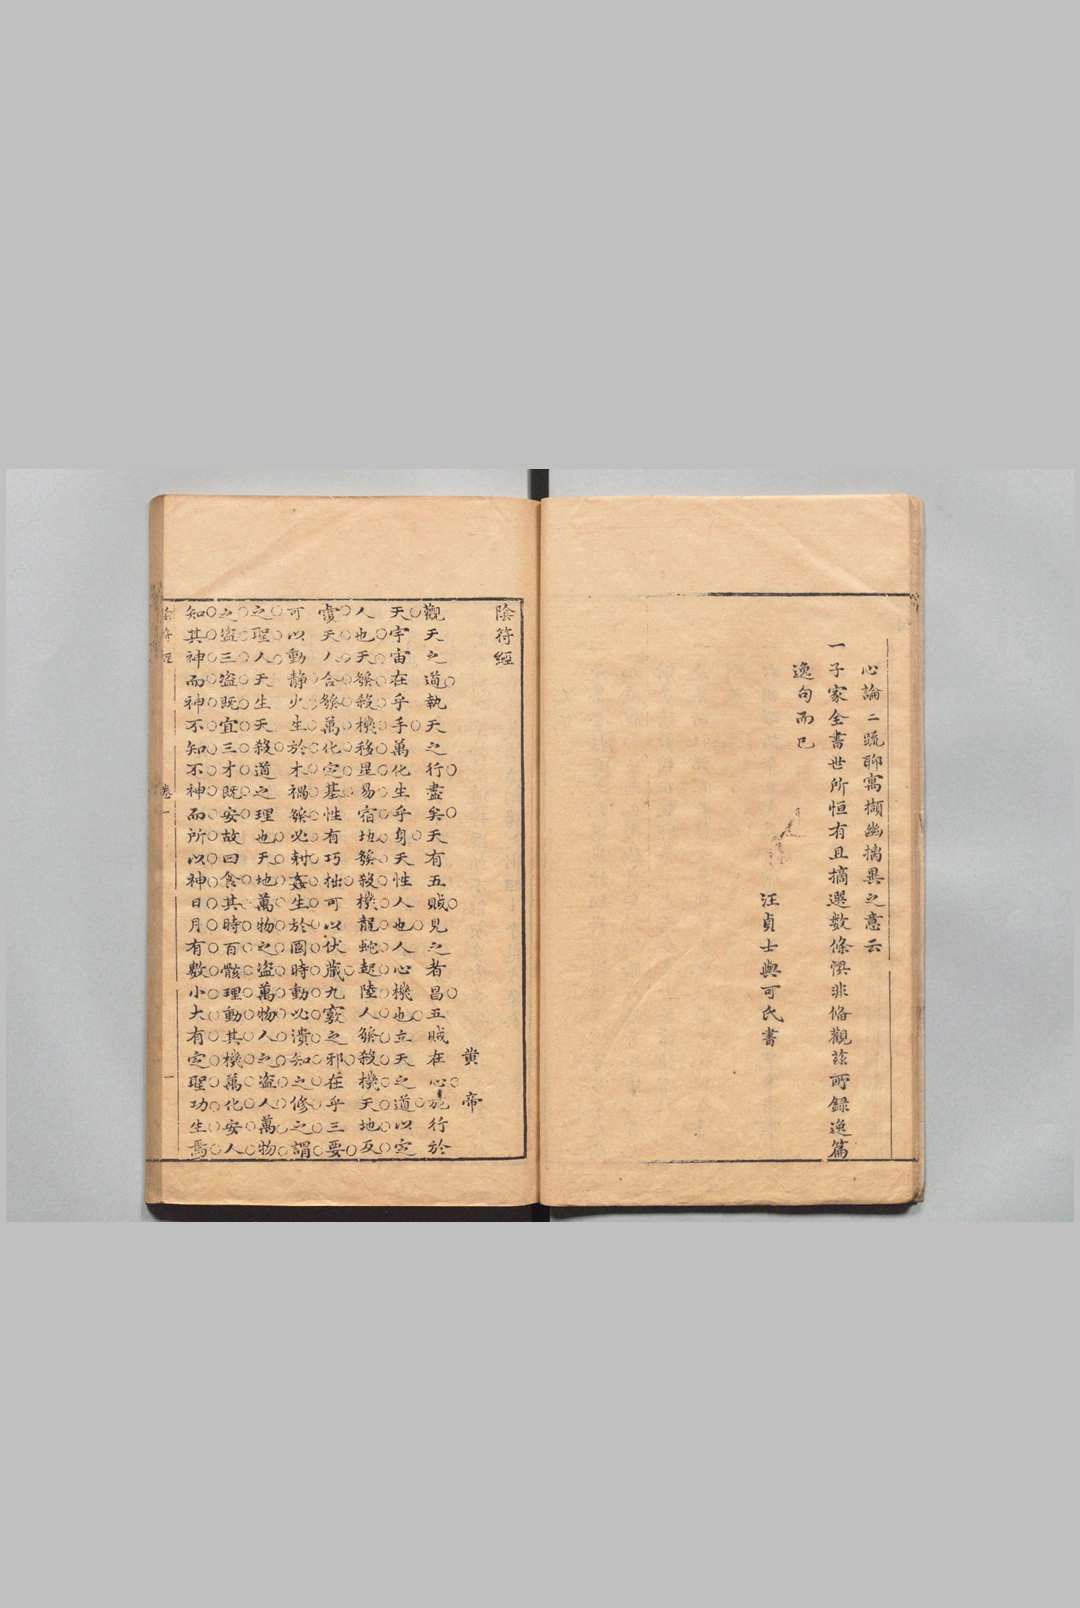 心論二疏聊寓擷幽揣異之意云
一子家全書世所恒有且摘選數條惧非偹觀茲所錄逸篇
逸句而已
汪貞士與可氏書
陰符經
黃帝
觀天之道執天之行盡矣天有五賊見之者昌五賊在心施行於
天宇宙在乎手萬化生乎身天性人也人心機也立天之道以定
人也天發殺機移星易宿地發殺機龍蛇起陸人發殺機天地反
覆天人合發萬化定基性有巧拙可以伏藏九竅之邪在乎三要
可以動靜火生於木禍發必剋姦生於國時動必潰知之修之謂
之聖人天生天殺道之理也天地萬物之盜萬物人之盜人萬物
之盜三盜既宜三才既安故曰食其時百骸理動其機萬化安人
知其神而神不知不神而所以神日月有數小大有定聖功生焉
陰符經 卷一 一